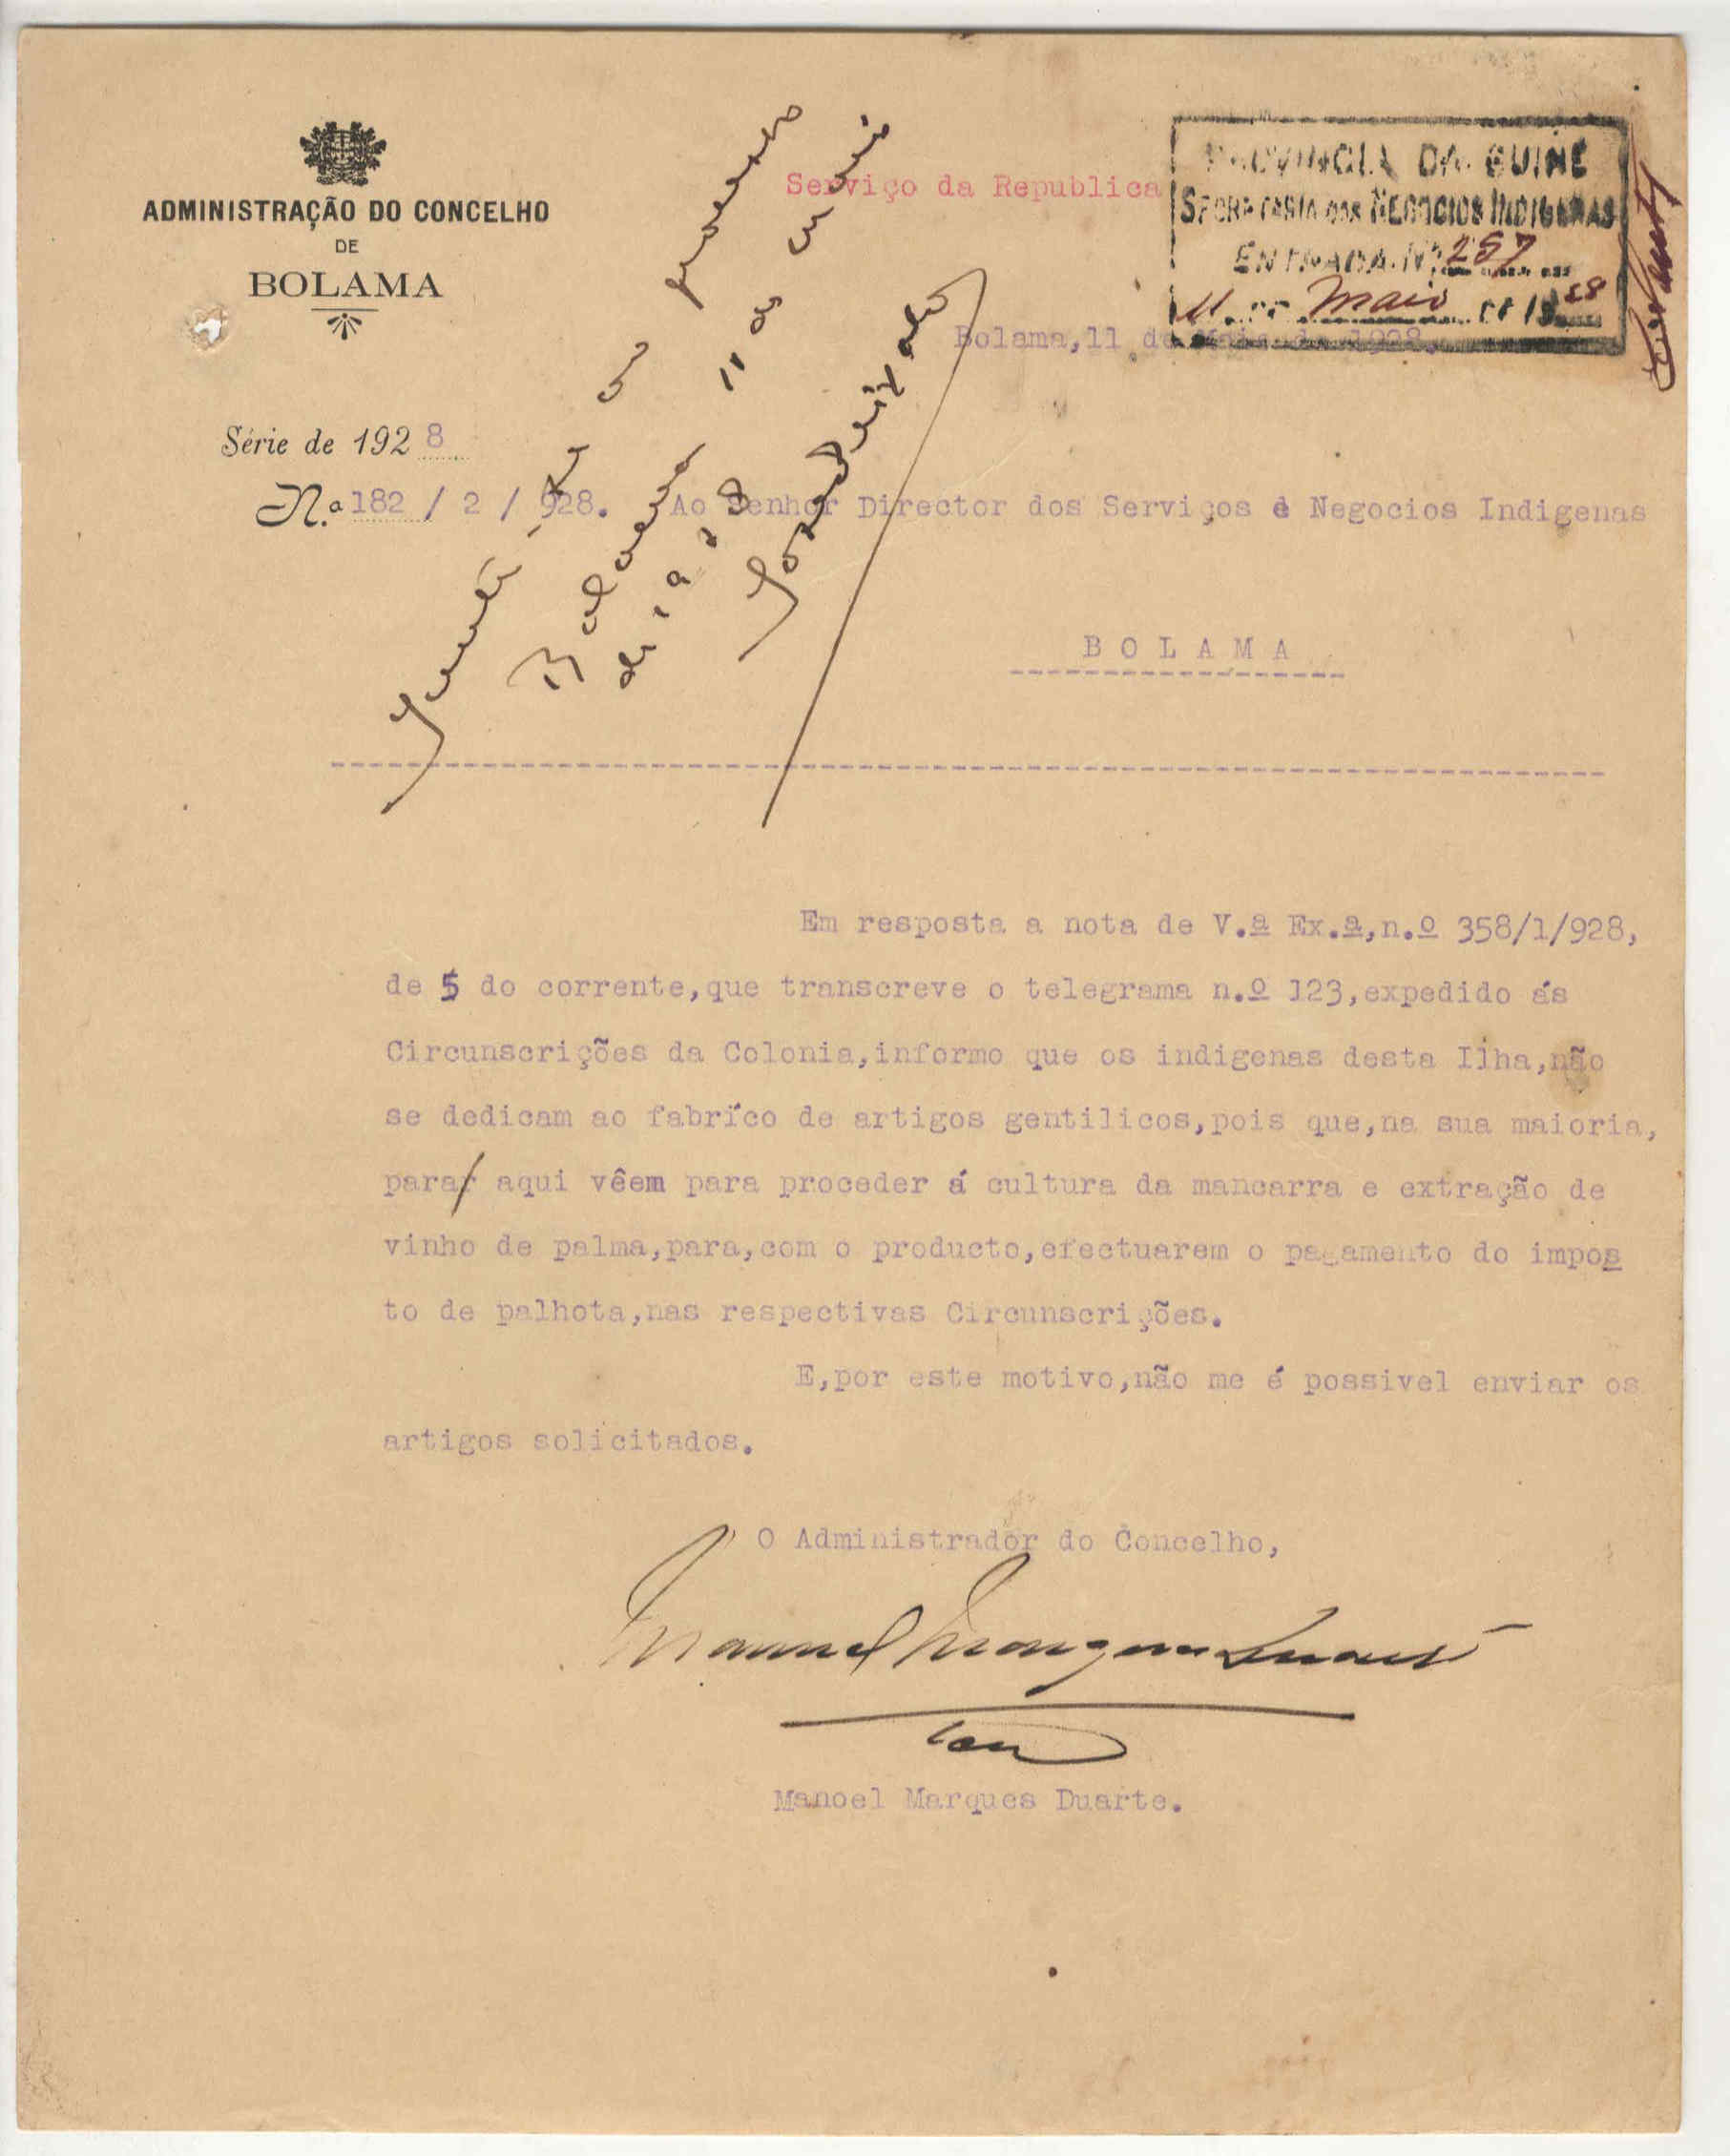 ADMINISTRAÇÃO DO CONCELHO
DE
BOLAMA
Serviço da Republica
PROVINCIA DA GUINÉ
SECRETARIA DOS NEGOCIOS INDIGENAS
ENTRADA Nº 257
11 de Maio de 1928
Bolama,11 de Maio de 1928.
Série de 1928
N.º 182 / 2 / 928. Ao Senhor Director dos Serviços e Negocios Indigenas
BOLAMA
Junte-se ao processo
Bolama 11 de maio
de 1928
Em resposta a nota de V.ª Ex.ª,n.º 358/1/928,
de 5 do corrente,que transcreve o telegrama n.º 123,expedido ás
Circunscrições da Colonia,informo que os indigenas desta Ilha,não
se dedicam ao fabríco de artigos gentilicos,pois que,na sua maioria,
para aqui vêem para proceder á cultura da mancarra e extração de
vinho de palma,para,com o producto,efectuarem o pagamento do impos
to de palhota,nas respectivas Circunscrições.
E,por este motivo,não me é possivel enviar os
artigos solicitados.
O Administrador do Concelho,
Manuel Marques Duarte
Manoel Marques Duarte.